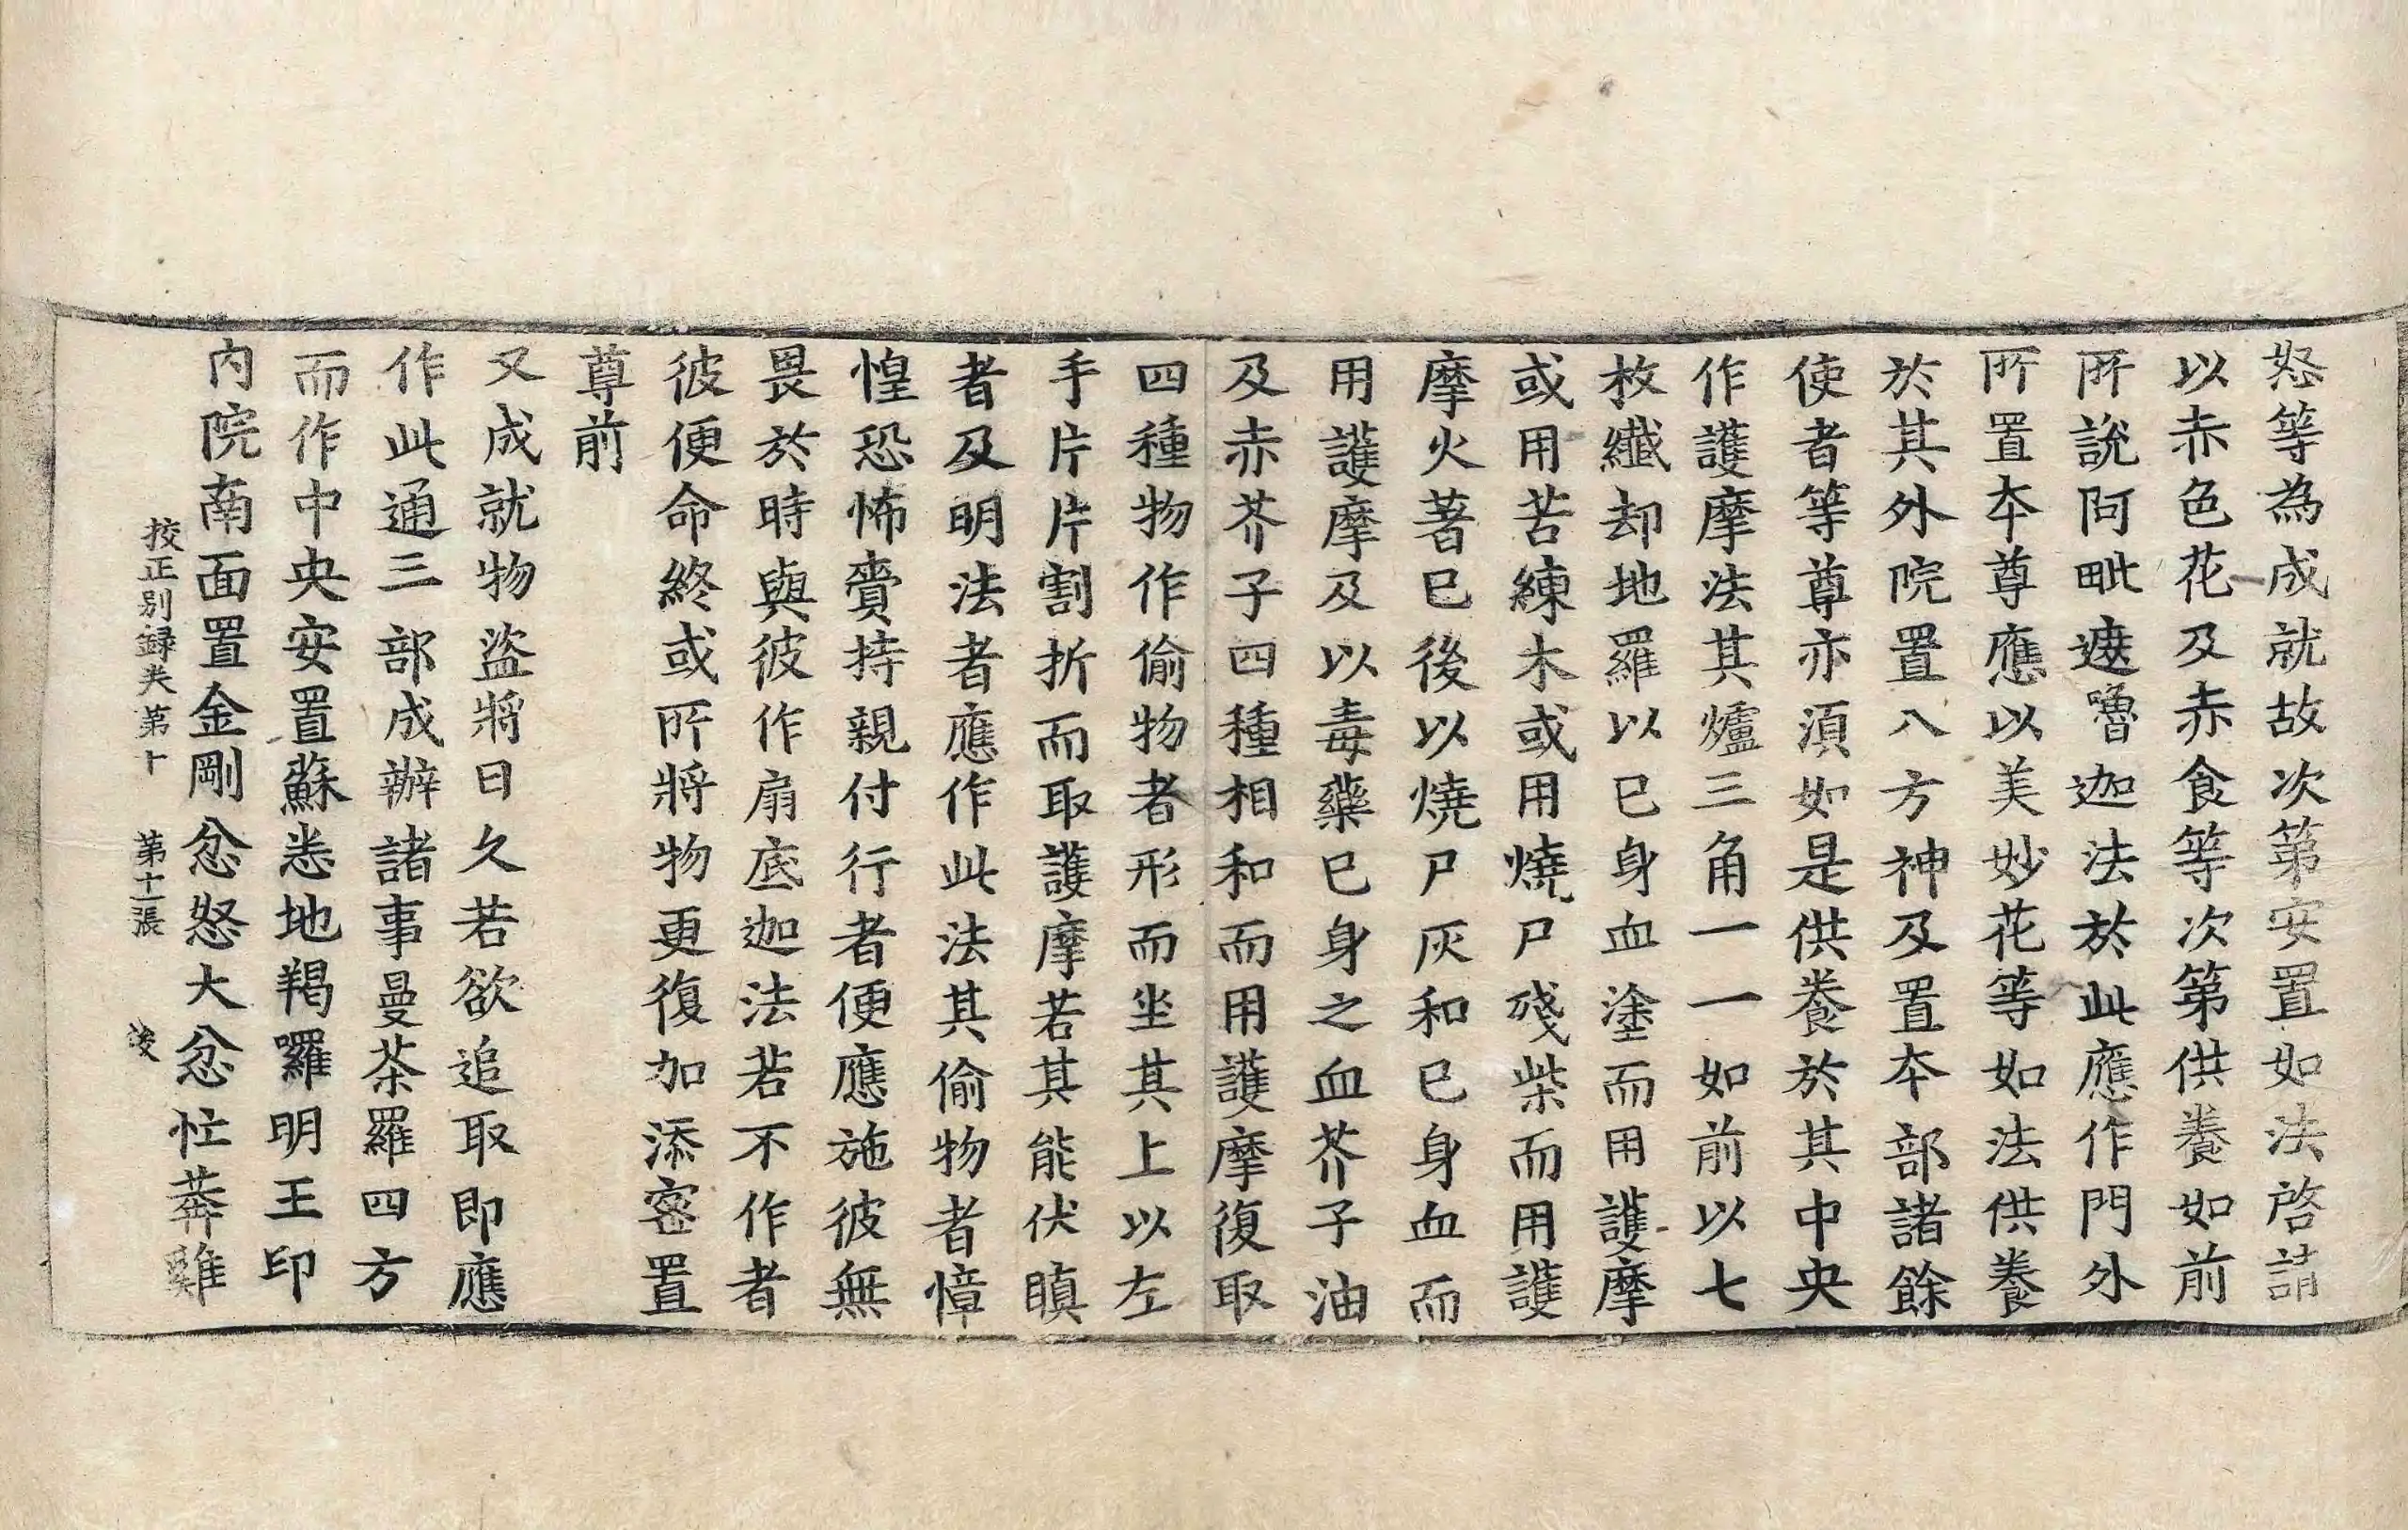 怒等為成就故次第安置如法啓請
以赤色花及赤食等次第供養如前
所說阿毗遮嚕迦法於此應作門外
所置本尊應以美妙花等如法供養
於其外院置八方神及置本部諸餘
使者等尊亦湏如是供養於其中央
作護摩法其爐三角一一如前以七
枚纖却地羅以已身血塗而用護摩
或用苦練木或用燒尸殘柴而用護
摩火著已後以燒尸灰和已身血而
用護摩及以毒藥已身之血芥子油
及赤芥子四種相和而用護摩復取
四種物作偷物者形而坐其上以左
手片片割折而取護摩若其能伏瞋
者及明法者應作此法其偷物者慞
惶恐怖賷持親付行者便應施彼無
畏於時與彼作扇底迦法若不作者
彼便命終或所將物更復加添密置
尊前
又成就物盜將日久若欲追取即應
作此通三部成辦諸事曼荼羅四方
而作中央安置蘇悉地羯囉明王印
內院南面置金剛忿怒大忿忙莽雞
挍正別録夾第十 第十二張 後